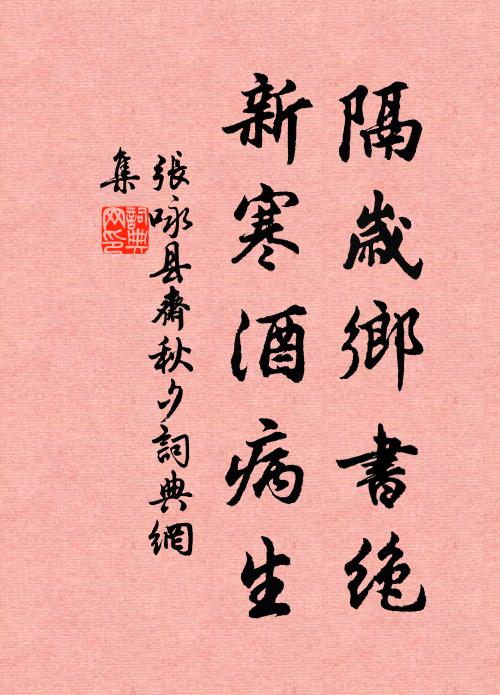 隔歲鄉書絶
新寒酒病生
張咏县齋秋夕詞典網
集
詞典
网印